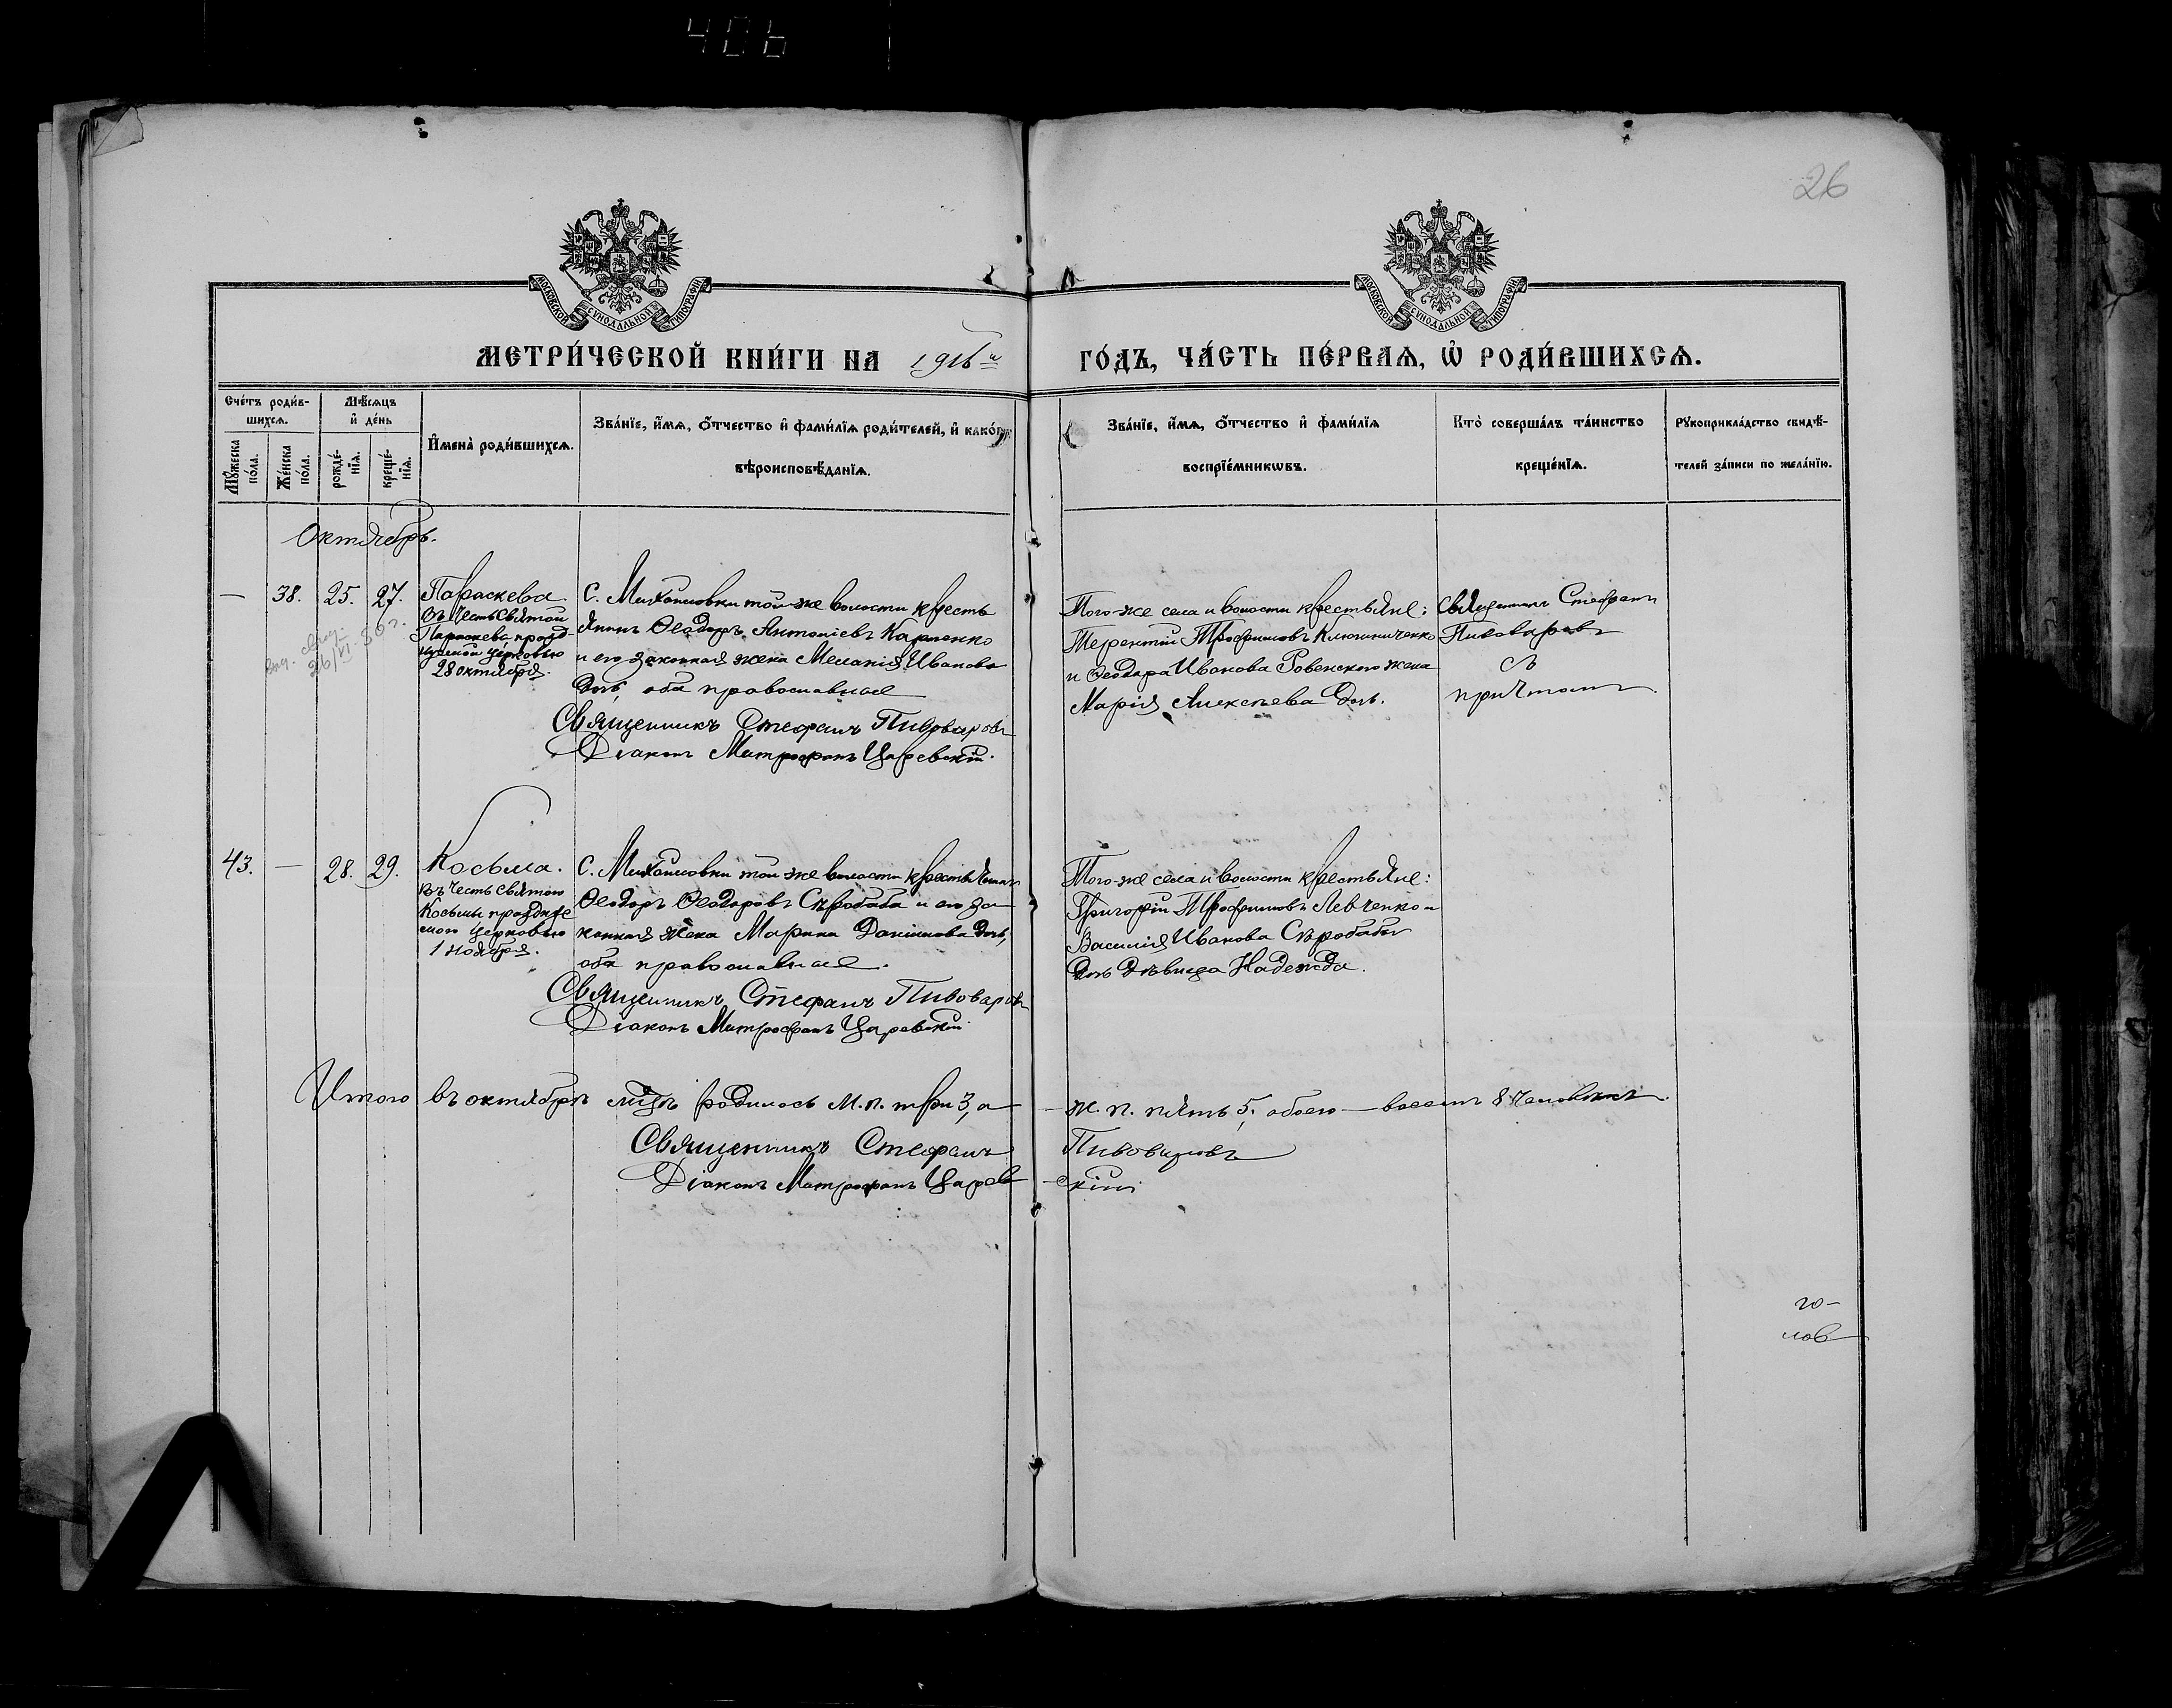 406
26
МОСКОВСКОЙ СѴНОДАЛЬНОЙ ТИПОГРАФІИ
МОСКОВСКОЙ СѴНОДАЛЬНОЙ ТИПОГРАФІИ
МЕТРИ́ЧЕСКОЙ КНИ́ГИ НА 1916й ГО́ДЪ, ЧА́СТЬ ПЕ́РВАѦ, Ѡ҆ РОДИ́ВШИХСѦ.
Сче́тъ роди́в-
шихсѧ.
Мꙋ́жеска по́ла.
Же́нска по́ла.
Мѣ́сѧцъ
и҆ де́нь
рожде́-
нїѧ.
креще́-
нїѧ.
И҆мена̀ роди́вшихсѧ.
Зва́нїе, и҆́мѧ, ѻ҆́тчество и҆ фами́лїѧ роди́телей, и҆ како́гѡ
вѣроисповѣ́данїѧ.
Зва́нїе, и҆́мѧ, ѻ҆́тчество и҆ фами́лїѧ
воспрїе́мникѡвъ.
Кто̀ соверша́лъ та́инство
креще́нїѧ.
Рꙋкоприкла́дство свидѣ́-
телей за́писи по жела́нїю.
Октябрь.
— 38. 25. 27.
Параскева
въ честь Святой
Параскевы празд-
нуемой церковью
28 октября.
С. Михайловки той-же волости кресть
янинъ Ѳеодоръ Антоніевъ Карпенко
и его законная жена Меланія Иванова
дочь, оба православные
Священникъ Стефанъ Пивоваровъ
Діаконъ Митрофанъ Царевскій.
Того-же села и волости крестьяне:
Терентій Трофимовъ
и Ѳеодора Иванова Ровенского жена
Марія Алексѣева дочь.
Священникъ Стефанъ
Пивоваровъ
съ
причтомъ.
43. — 28. 29.
Косьма.
въ честь святого
Косьмы праздн
мого церковью
1 ноября.
С. Михайловки той же волости крестьянинъ
Ѳеодоръ Ѳеодоровъ Сѣробаба и его за
конная жена Марина Даніилова дочь,
оба православные.
Священникъ Стефанъ Пивоваровъ
Діаконъ Митрофанъ Царевскій.
Того-же села и волости крестьяне:
Григорій Трофимовъ Левченко и
Василія Иванова Сѣробабы
дочь дѣвица Надежда.
Итого въ октябрѣ мцѣ родилось м. п. три 3, а — ж. п. пять 5, обоего — восемь 8 человѣкъ.
Священникъ Стефанъ Пивоваровъ
Діаконъ Митрофанъ Царев-скій
го-
лов